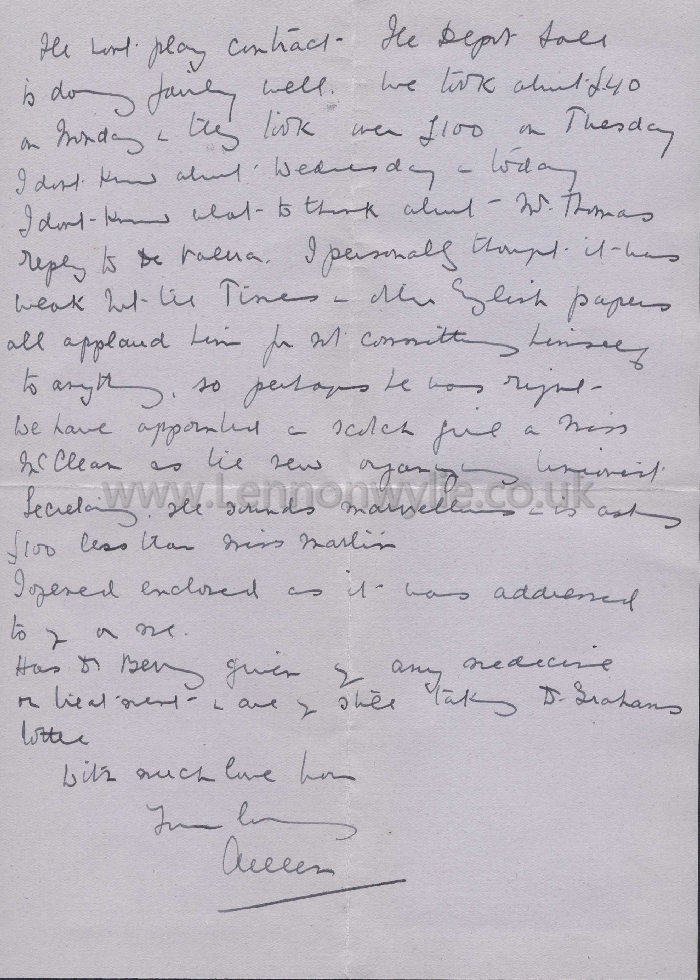 He wont play contract - The Depot Sale
is doing fairly well. We took about £40
on Monday & they took over £100 on Tuesday
I dont know about Wednesday & today
I dont know what to think about Mr. Thomas
reply to De Valera. I personally thought it was
weak but the Times & other English papers
all applaud him for not committing himself
to anything, so perhaps he was right -
We have appointed a Scotch girl a Miss
McClean as the new organizing Unionist
Secretary. She sounds marvellous & is asking
£100 less than Miss Martin
I opened enclosed as it was addressed
to y or me.
Has Dr Berry given y any medicine
or treatment - & are y still taking Dr Grahams
bottle
With much love from
Your loving
www.Lennonwylie.co.uk